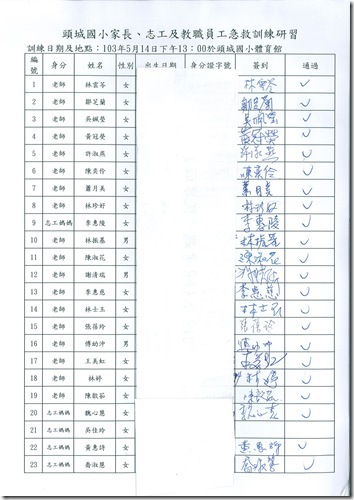 頭城國小家長、志工及教職員工急救訓練研習
訓練日期及地點：103年5月14日下午13：00於頭城國小體育館
編號 身分 姓名 性別 出生日期 身分證字號 簽到 通過
1 老師 林雲苓 女 ✓
2 老師 鄒芝蘭 女 鄒芝蘭 ✓
3 老師 吳姵瑩 女 吳姵瑩 ✓
4 老師 黃冠縈 女 黃冠縈 ✓
5 老師 許淑燕 女 許淑燕 ✓
6 老師 陳奕伶 女 陳奕伶 ✓
7 老師 蕭月美 女 ✓
8 老師 林珍好 女 ✓
9 志工媽媽 李惠陵 女 李惠陵 ✓
10 老師 林振基 男 林振基 ✓
11 老師 陳淑花 女 陳淑花 ✓
12 老師 謝清瑞 男 ✓
13 老師 李惠慈 女 李惠慈 ✓
14 老師 林士玉 女 林士玉 ✓
15 老師 張蓓玲 女 ✓
16 老師 傅幼沖 男 傅幼沖 ✓
17 老師 王美虹 女 ✓
18 老師 林婷 女 林婷 ✓
19 老師 陳歆茹 女 ✓
20 志工媽媽 魏心慧 女 ✓
21 志工媽媽 吳佳玲 女
22 志工媽媽 黃惠詩 女 黃惠詩 ✓
23 志工媽媽 喬淑慧 女 ✓